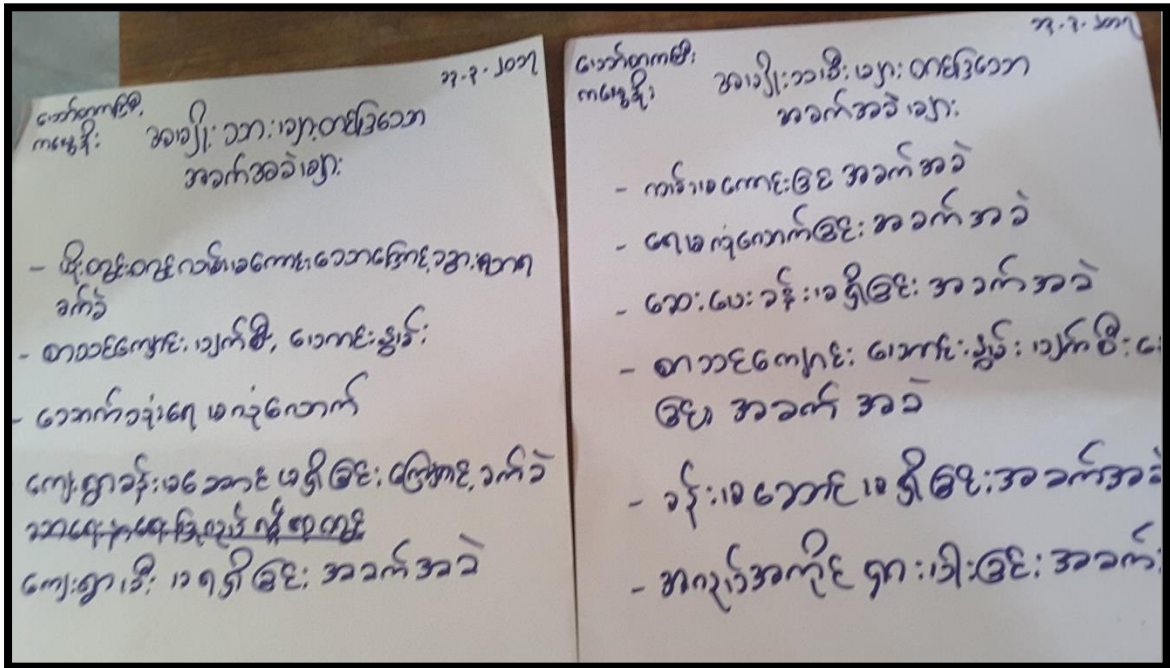 ၁၃.၃.၂၀၁၇
ကမ္မွေနိုး
အမျိုးသားများတင်ပြသော
အခက်အခဲများ
ခက်ခဲ
- စာသင်ကျောင်း ပျက်စီး, ဟောင်းနွမ်း
- သောက်သုံးရေ မလုံလောက်
ကျေးရွာခန်းမဆောင် မရှိခြင်းကြောင့် ခက်ခဲ
ကျေးရွာမီး မရရှိခြင်း အခက်အခဲ
၁၃.၃.၂၀၁၇
ကမ္မွေနိုး
အမျိုးသမီးများ တင်ပြသော
အခက်အခဲများ
- လမ်းမကောင်းခြင်း အခက်အခဲ
- ရေမလုံလောက်ခြင်း အခက်အခဲ
- ဆေးပေးခန်းမရှိခြင်း အခက်အခဲ
- စာသင်ကျောင်း ဟောင်းနွမ်း ပျက်စီး
ခြင်း အခက်အခဲ
- ခန်းမဆောင်မရှိခြင်း အခက်အခဲ
- အလုပ်အကိုင် ရှားပါးခြင်း အခက်